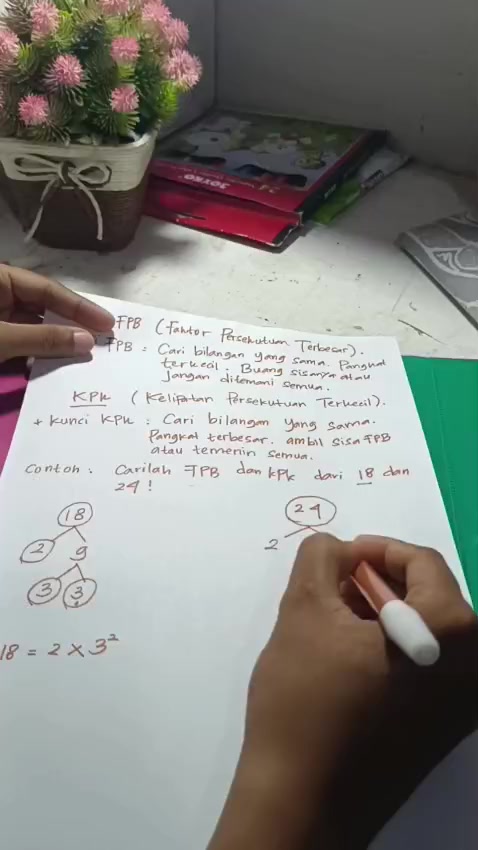 FPB (Faktor Persekutuan Terbesar).
FPB : Cari bilangan yang sama. Pangkat
terkecil. Buang sisanya atau
jangan ditemani semua.
KPK (Kelipatan Persekutuan Terkecil).
* kunci KPK : Cari bilangan yang sama.
Pangkat terbesar. ambil sisa FPB
atau temenin semua.
Contoh : Carilah FPB dan KPK dari 18 dan
24 !
18
2 9
3 3
18 = 2 × 3²
24
2
JOYKO